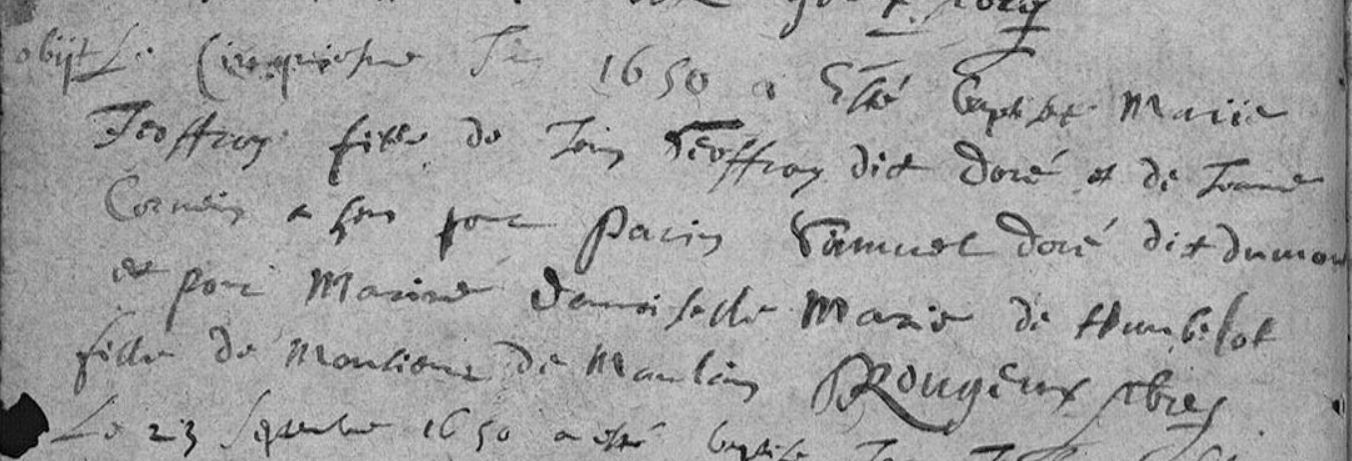 obijt Le Cinquiesme 1650 a Esté baptisé Marie
Jeoffroy fille de Jean Jeoffroy dict Doré et de Jeanne
a heu pour Parin Samuel Doré dit Dumon
et pour Marine damoiselle Marie de Humbelot
fille de Monsieur de Maulain Rougeux pbre
Le 23 Septembre 1650 a esté baptisé